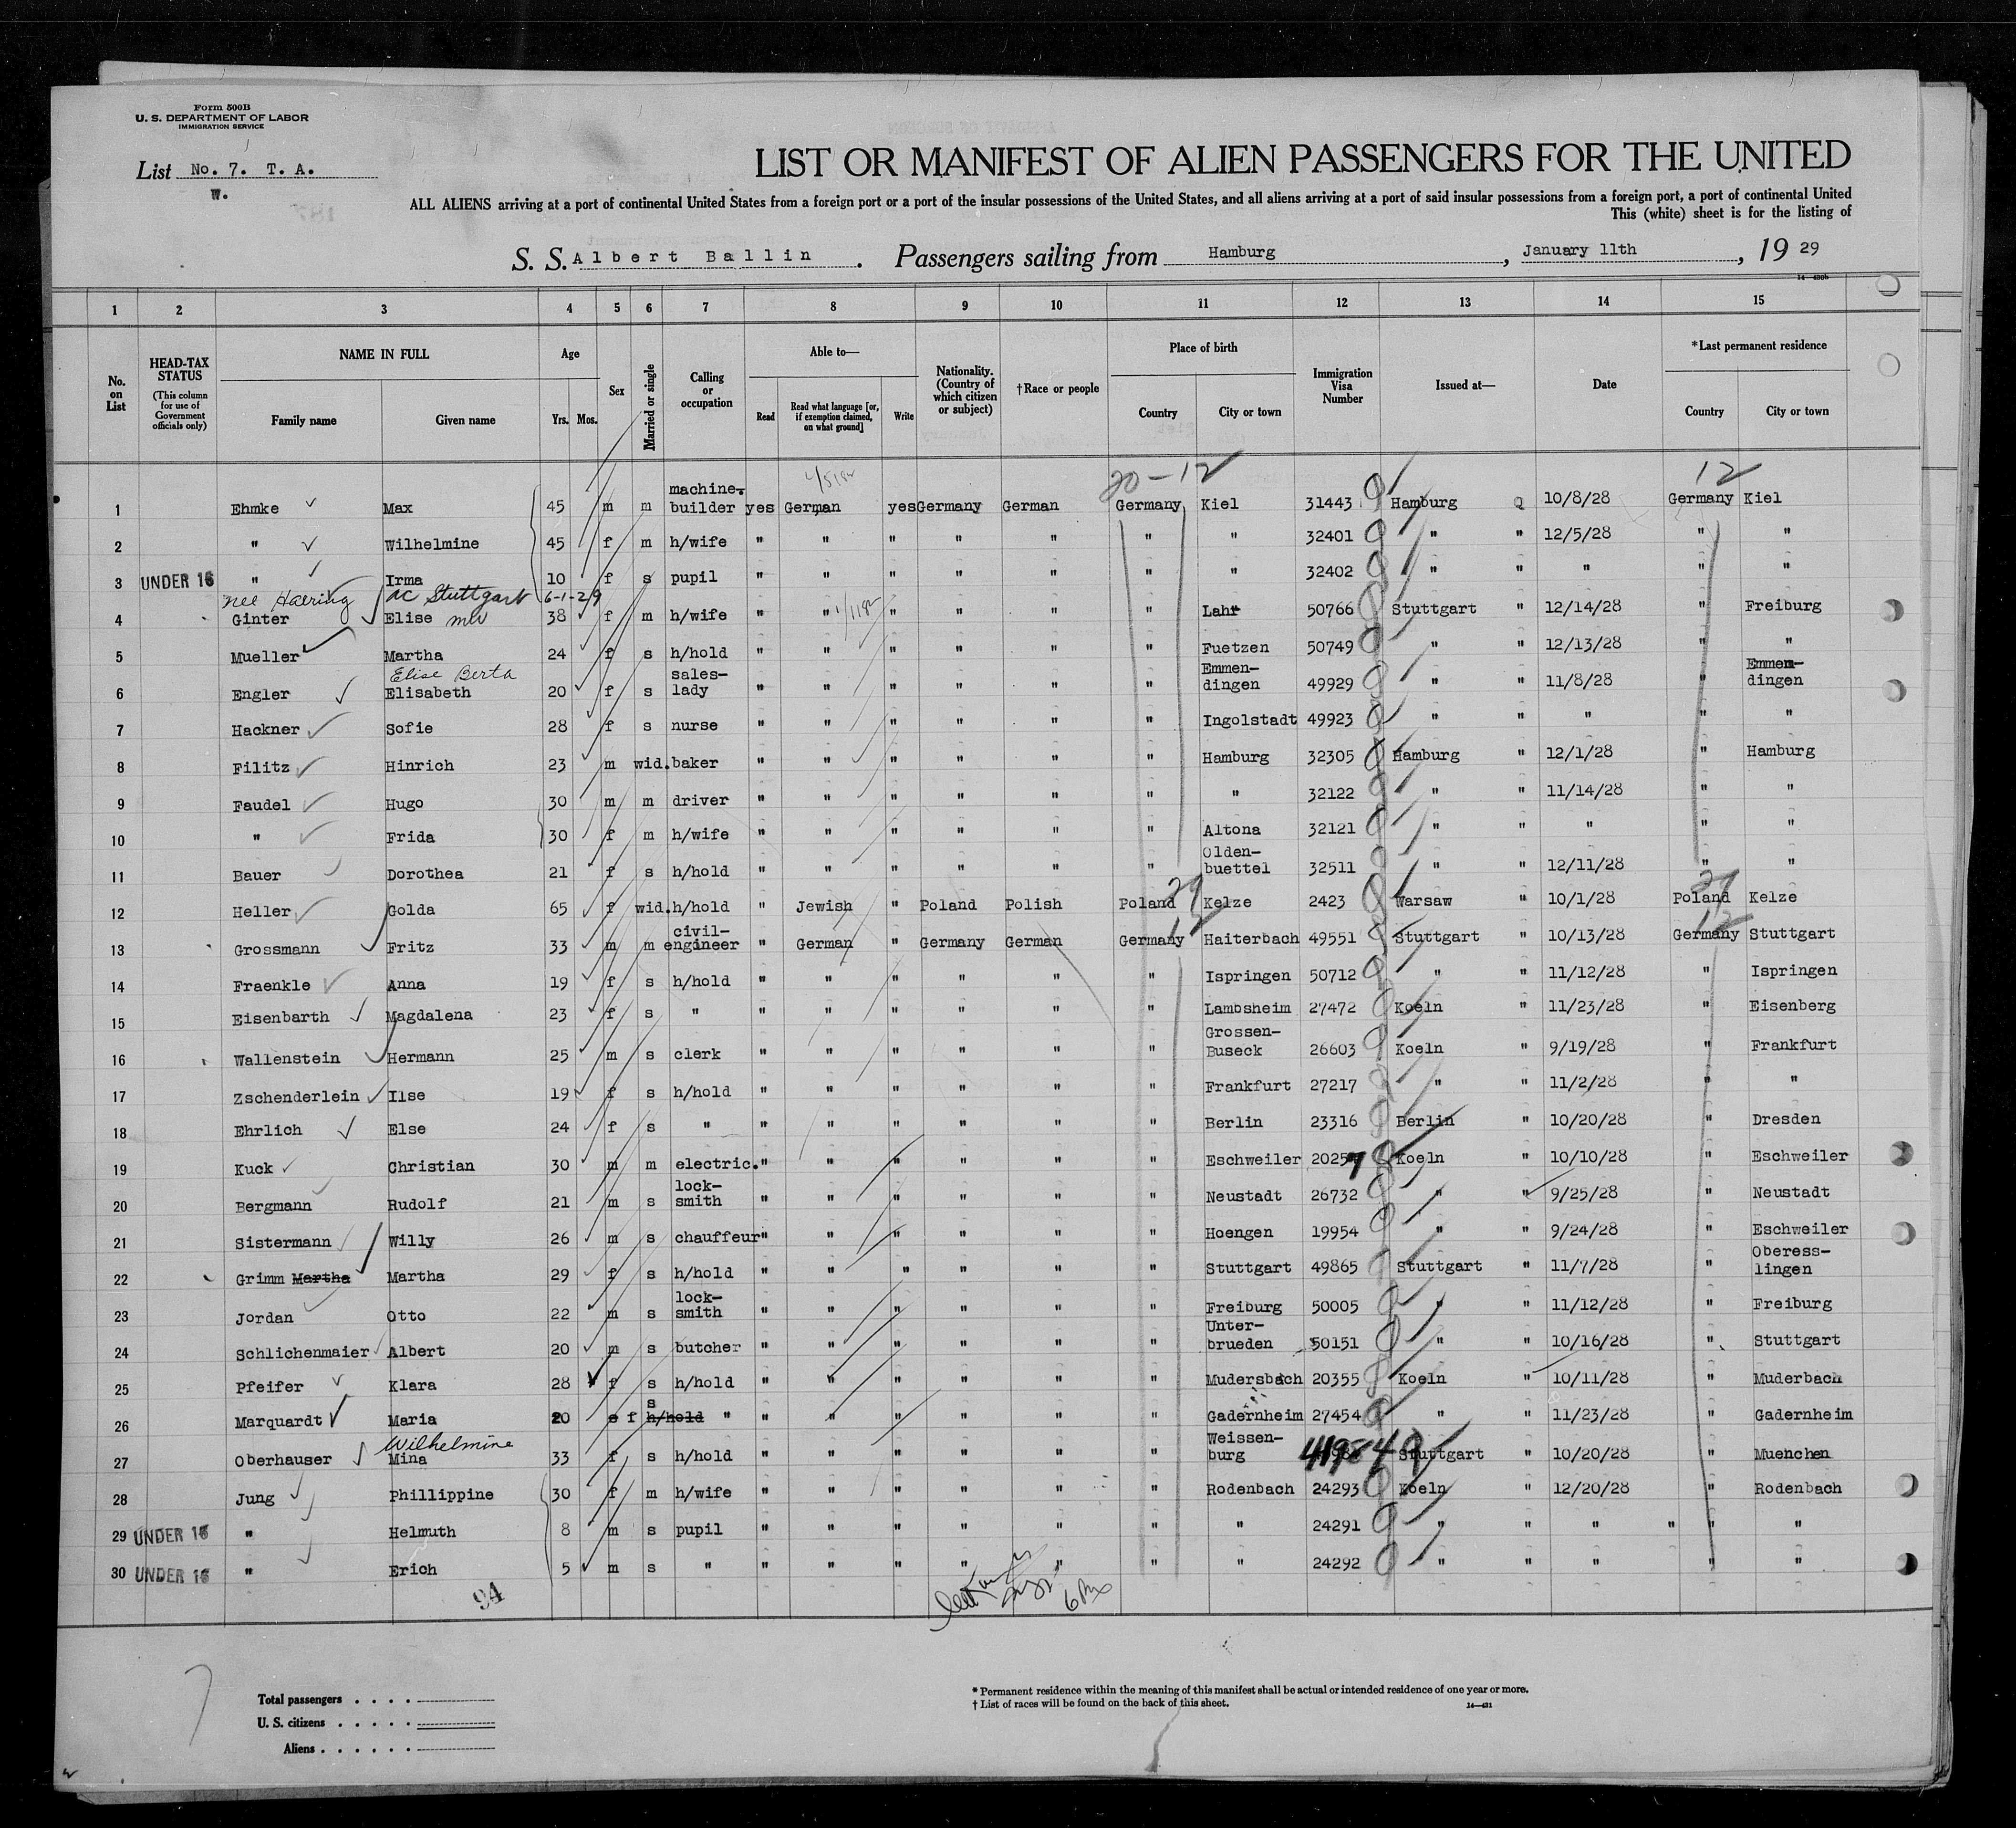 Form 500B
U. S. DEPARTMENT OF LABOR
IMMIGRATION SERVICE
List No. 7. T. A.
W.
LIST OR MANIFEST OF ALIEN PASSENGERS FOR THE UNITED
ALL ALIENS arriving at a port of continental United States from a foreign port or a port of the insular possessions of the United States, and all aliens arriving at a port of said insular possessions from a foreign port, a port of continental United
This (white) sheet is for the listing of
S. S. Albert Ballin. Passengers sailing from Hamburg, January 11th, 19 29
1 2 3 4 5 6 7 8 9 10 11 12 13 14 15
No. on List
HEAD-TAX STATUS (This column for use of Government officials only)
NAME IN FULL Family name Given name
Age Yrs. Mos.
Sex
Married or single
Calling or occupation
Able to— Read Read what language [or, if exemption claimed, on what ground] Write
Nationality. (Country of which citizen or subject)
†Race or people
Place of birth Country City or town
Immigration Visa Number
Issued at—
Date
*Last permanent residence Country City or town
20-12 12
1 Ehmke Max 45 m m machine-builder yes German yes Germany German Germany Kiel 31443 Hamburg 10/8/28 Germany Kiel
2 " Wilhelmine 45 f m h/wife " " " " " " " 32401 " " 12/5/28 " "
3 UNDER 16 " Irma 10 f s pupil " " " " " " " 32402 " " " " "
nee Haering NC Stuttgart 6-1-29
4 Ginter Elise 38 f m h/wife " " " " " " Lahr 50766 Stuttgart " 12/14/28 " Freiburg
5 Mueller Martha 24 f s h/hold " " " " " " Fuetzen 50749 " " 12/13/28 " "
Elise Berta
6 Engler Elisabeth 20 f s sales-lady " " " " " " Emmen-dingen 49929 " " 11/8/28 " Emmen-dingen
7 Hackner Sofie 28 f s nurse " " " " " " Ingolstadt 49923 " " " " "
8 Filitz Hinrich 23 m wid. baker " " " " " " Hamburg 32305 Hamburg " 12/1/28 " Hamburg
9 Faudel Hugo 30 m m driver " " " " " " " 32122 " " 11/14/28 " "
10 " Frida 30 f m h/wife " " " " " " Altona 32121 " " " " "
11 Bauer Dorothea 21 f s h/hold " " " " " " Olden-buettel 32511 " " 12/11/28 " "
29 29
12 Heller Golda 65 f wid. h/hold " Jewish " Poland Polish Poland Kelze 2423 Warsaw " 10/1/28 Poland Kelze
12 12
13 Grossmann Fritz 33 m m civil-engineer " German " Germany German Germany Haiterbach 49551 Stuttgart " 10/13/28 Germany Stuttgart
14 Fraenkle Anna 19 f s h/hold " " " " " " Ispringen 50712 " " 11/12/28 " Ispringen
15 Eisenbarth Magdalena 23 f s " " " " " " " Lambsheim 27472 Koeln " 11/23/28 " Eisenberg
16 Wallenstein Hermann 25 m s clerk " " " " " " Grossen-Buseck 26603 Koeln " 9/19/28 " Frankfurt
17 Zschenderlein Ilse 19 f s h/hold " " " " " " Frankfurt 27217 " " 11/2/28 " "
18 Ehrlich Else 24 f s " " " " " " " Berlin 23316 Berlin " 10/20/28 " Dresden
19 Kuck Christian 30 m m electric. " " " " " " Eschweiler 20257 Koeln " 10/10/28 " Eschweiler
20 Bergmann Rudolf 21 m s lock-smith " " " " " " Neustadt 26732 " " 9/25/28 " Neustadt
21 Sistermann Willy 26 m s chauffeur " " " " " " Hoengen 19954 " " 9/24/28 " Eschweiler
22 Grimm Martha Martha 29 f s h/hold " " " " " " Stuttgart 49865 Stuttgart " 11/7/28 " Oberess-lingen
23 Jordan Otto 22 m s lock-smith " " " " " " Freiburg 50005 " " 11/12/28 " Freiburg
24 Schlichenmaier Albert 20 m s butcher " " " " " " Unter-brueden 50151 " " 10/16/28 " Stuttgart
25 Pfeifer Klara 28 f s h/hold " " " " " " Mudersbach 20355 Koeln " 10/11/28 " Muderbach
26 Marquardt Maria 20 s f s h/hold " " " " " " " Gadernheim 27454 " " 11/23/28 " Gadernheim
Wilhelmine
27 Oberhauser Mina 33 f s h/hold " " " " " " Weissen-burg 41984 Stuttgart " 10/20/28 " Muenchen
28 Jung Phillippine 30 f m h/wife " " " " " " Rodenbach 24293 Koeln " 12/20/28 " Rodenbach
29 UNDER 16 " Helmuth 8 m s pupil " " " " " " " 24291 " " " " " "
30 UNDER 16 " Erich 5 m s " " " " " " " " 24292 " " " " "
94
7
Total passengers
U. S. citizens
Aliens
* Permanent residence within the meaning of this manifest shall be actual or intended residence of one year or more.
† List of races will be found on the back of this sheet.
14—431